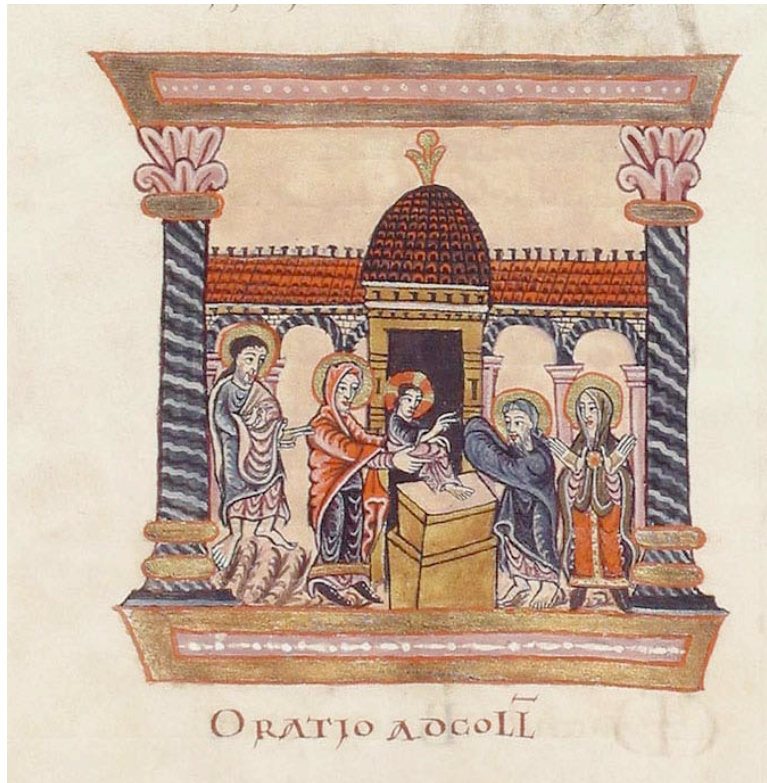 ORATIO ADCOLL̄